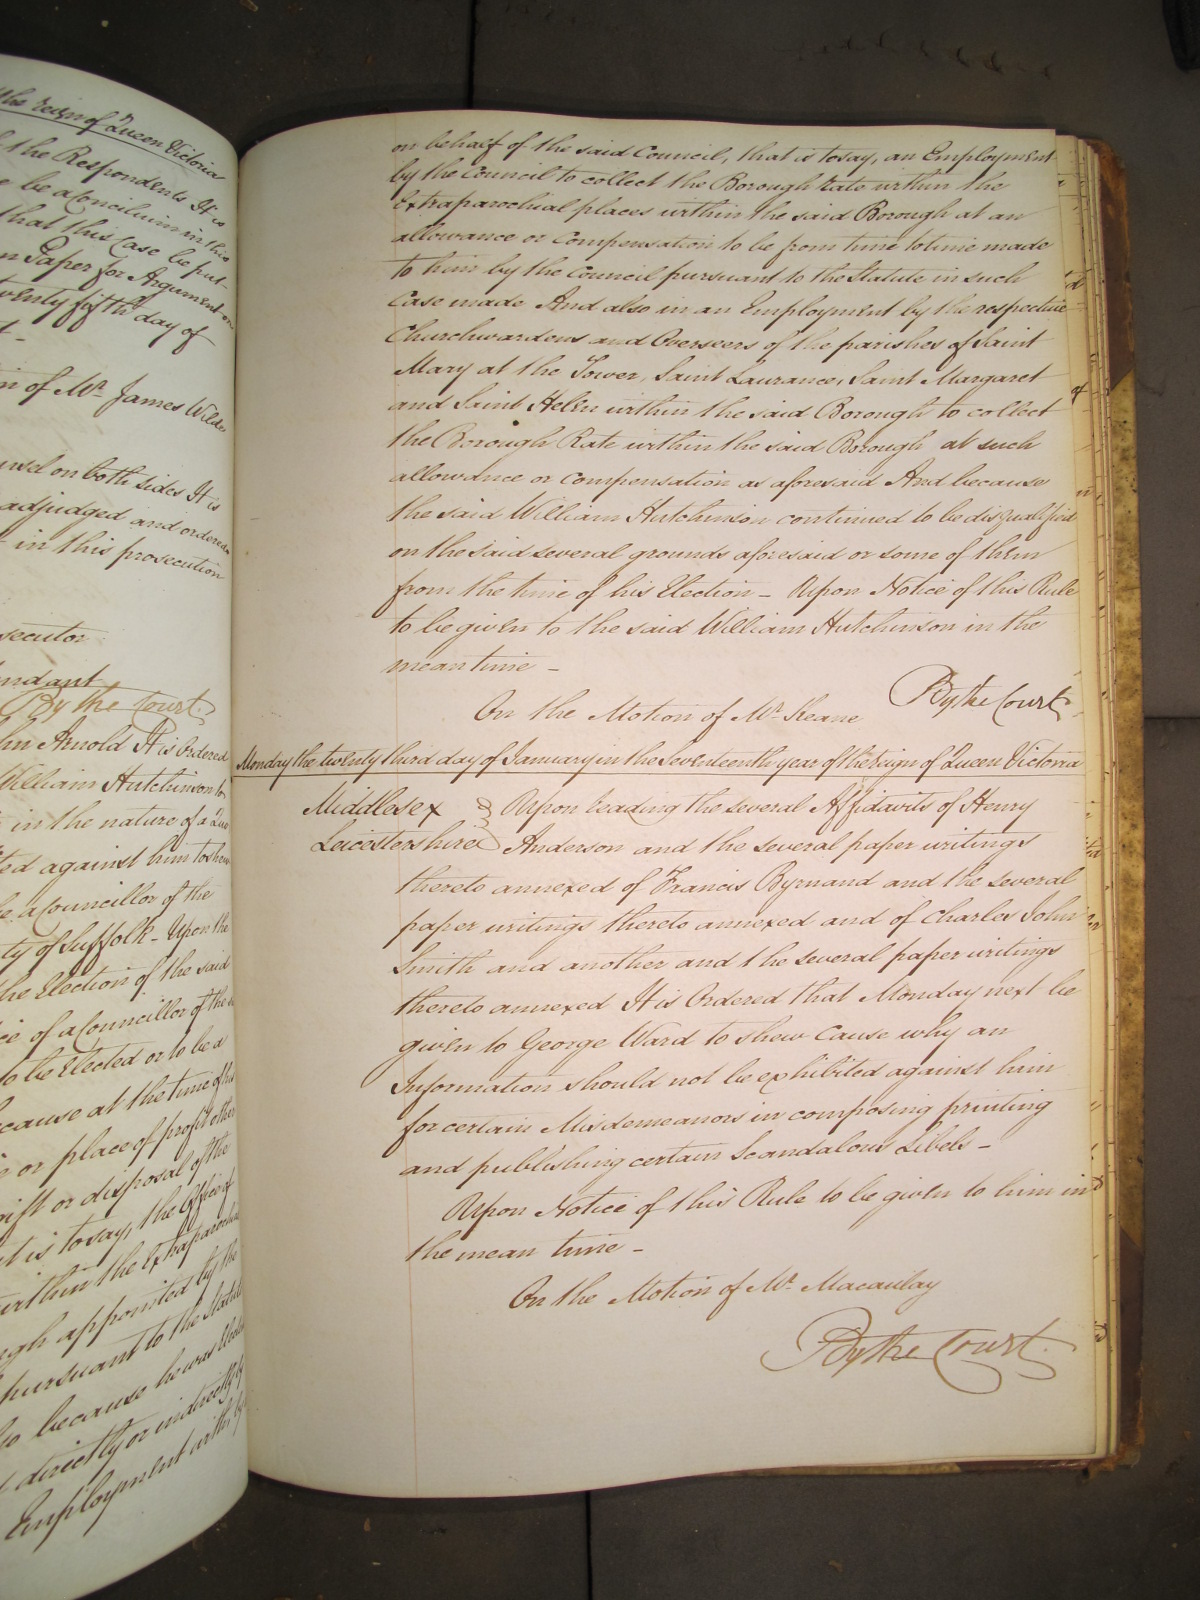 the reign of Queen Victoria
the Respondents It is
be a Concilium in this
that this Case be put
Paper for Argument on
twenty fifth day of
of Mr. James Wilde
on both sides It is
adjudged and ordered
in this prosecution
By the Court.
Arnold It is Ordered
William Hutchinson to
in the nature of a Quo
against him to shew
a Councillor of the
of Suffolk - Upon the
the Election of the said
of a Councillor of the
to be Elected or to be a
because at the time of his
or place of profit other
gift or disposal of the
is to say, the Office of
within the Extraparochial
appointed by the
pursuant to the Statute
because he was
directly or indirectly by
Employment with, by
on behalf of the said Council, that is to say, an Employment
by the Council to collect the Borough Rate within the
Extraparochial places within the said Borough at an
allowance or Compensation to be from time to time made
to him by the Council pursuant to the Statute in such
Case made And also in an Employment by the respective
Churchwardens and Overseers of the parishes of Saint
Mary at the Tower, Saint Laurance, Saint Margaret
and Saint Helen within the said Borough to collect
the Borough Rate within the said Borough at such
allowance or compensation as aforesaid And because
the said William Hutchinson continued to be disqualified
on the said several grounds aforesaid or some of them
from the time of his Election - Upon Notice of this Rule
to be given to the said William Hutchinson in the
mean time -
On the Motion of Mr. Keane
By the Court.
Monday the twenty third day of January in the Seventeenth year of the reign of Queen Victoria
Middlesex Upon reading the several Affidavits of Henry
Leicestershire Anderson and the several paper writings
thereto annexed of Francis Byrnand and the several
paper writings thereto annexed and of Charles John
Smith and another and the several paper writings
thereto annexed It is Ordered that Monday next be
given to George Ward to shew Cause why an
Information should not be exhibited against him
for certain Misdemeanors in composing printing
and publishing certain Scandalous Libels -
Upon Notice of this Rule to be given to him in
the mean time -
On the Motion of Mr. Macaulay
By the Court.